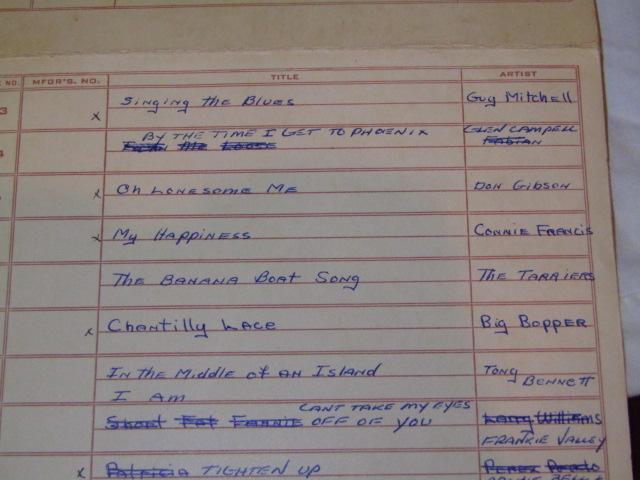 E NO. MFGR'S. NO. TITLE ARTIST
3 x Singing the Blues Guy Mitchell
BY THE TIME I GET TO PHOENIX GLEN CAMPELL
4 FABIAN
x Oh LONESOME ME DON GIBSON
x My HAPPINESS CONNIE FRANCIS
The BANANA BOAT SONG The TARRIERS
x Chantilly LACE Big BOPPER
IN the Middle of AN ISLAND Tony
BENNETT
I AM
CANT TAKE MY EYES
Short Fat Fannie OFF OF YOU Larry Williams
FRANKIE VALLEY
x Patricia TIGHTEN UP PEREZ PRADO